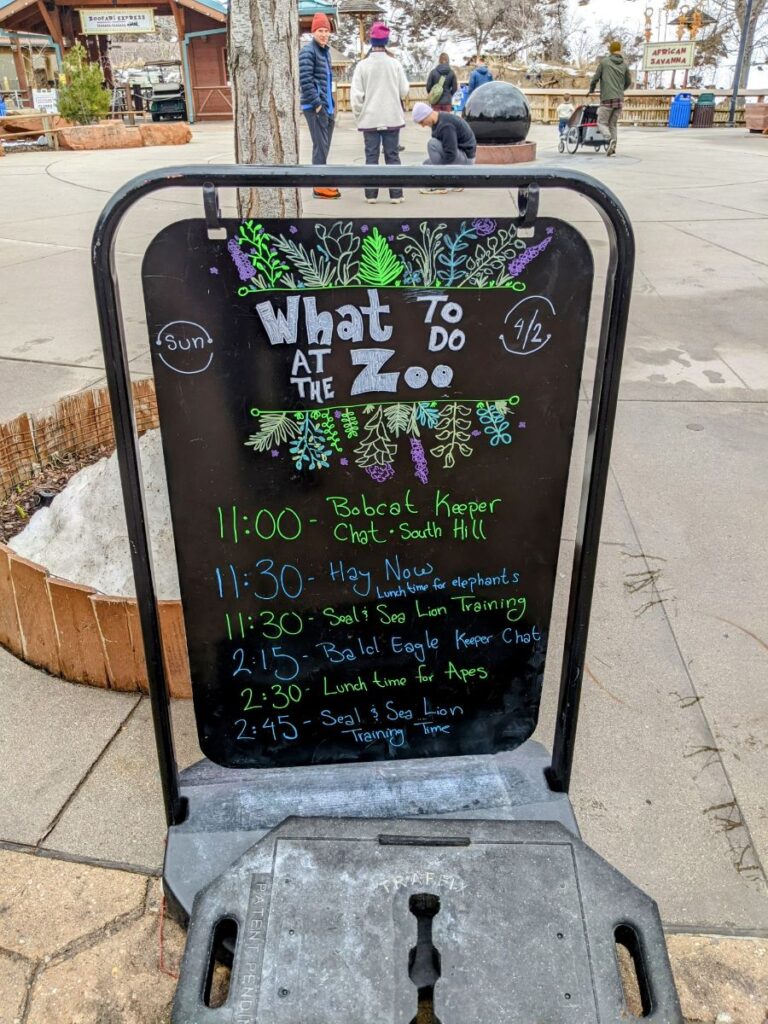 ZOOFARI EXPRESS
AFRICAN
SAVANNA
Sun
What To Do
AT THE Zoo
4/2
11:00 - Bobcat Keeper
Chat • South Hill
11:30 - Hay Now
Lunch time for elephants
11:30 - Seal & Sea Lion Training
2:15 - Bald Eagle Keeper Chat
2:30 - Lunch time for Apes
2:45 - Seal & Sea Lion
Training Time
TRAFFIX
PATENT PENDING